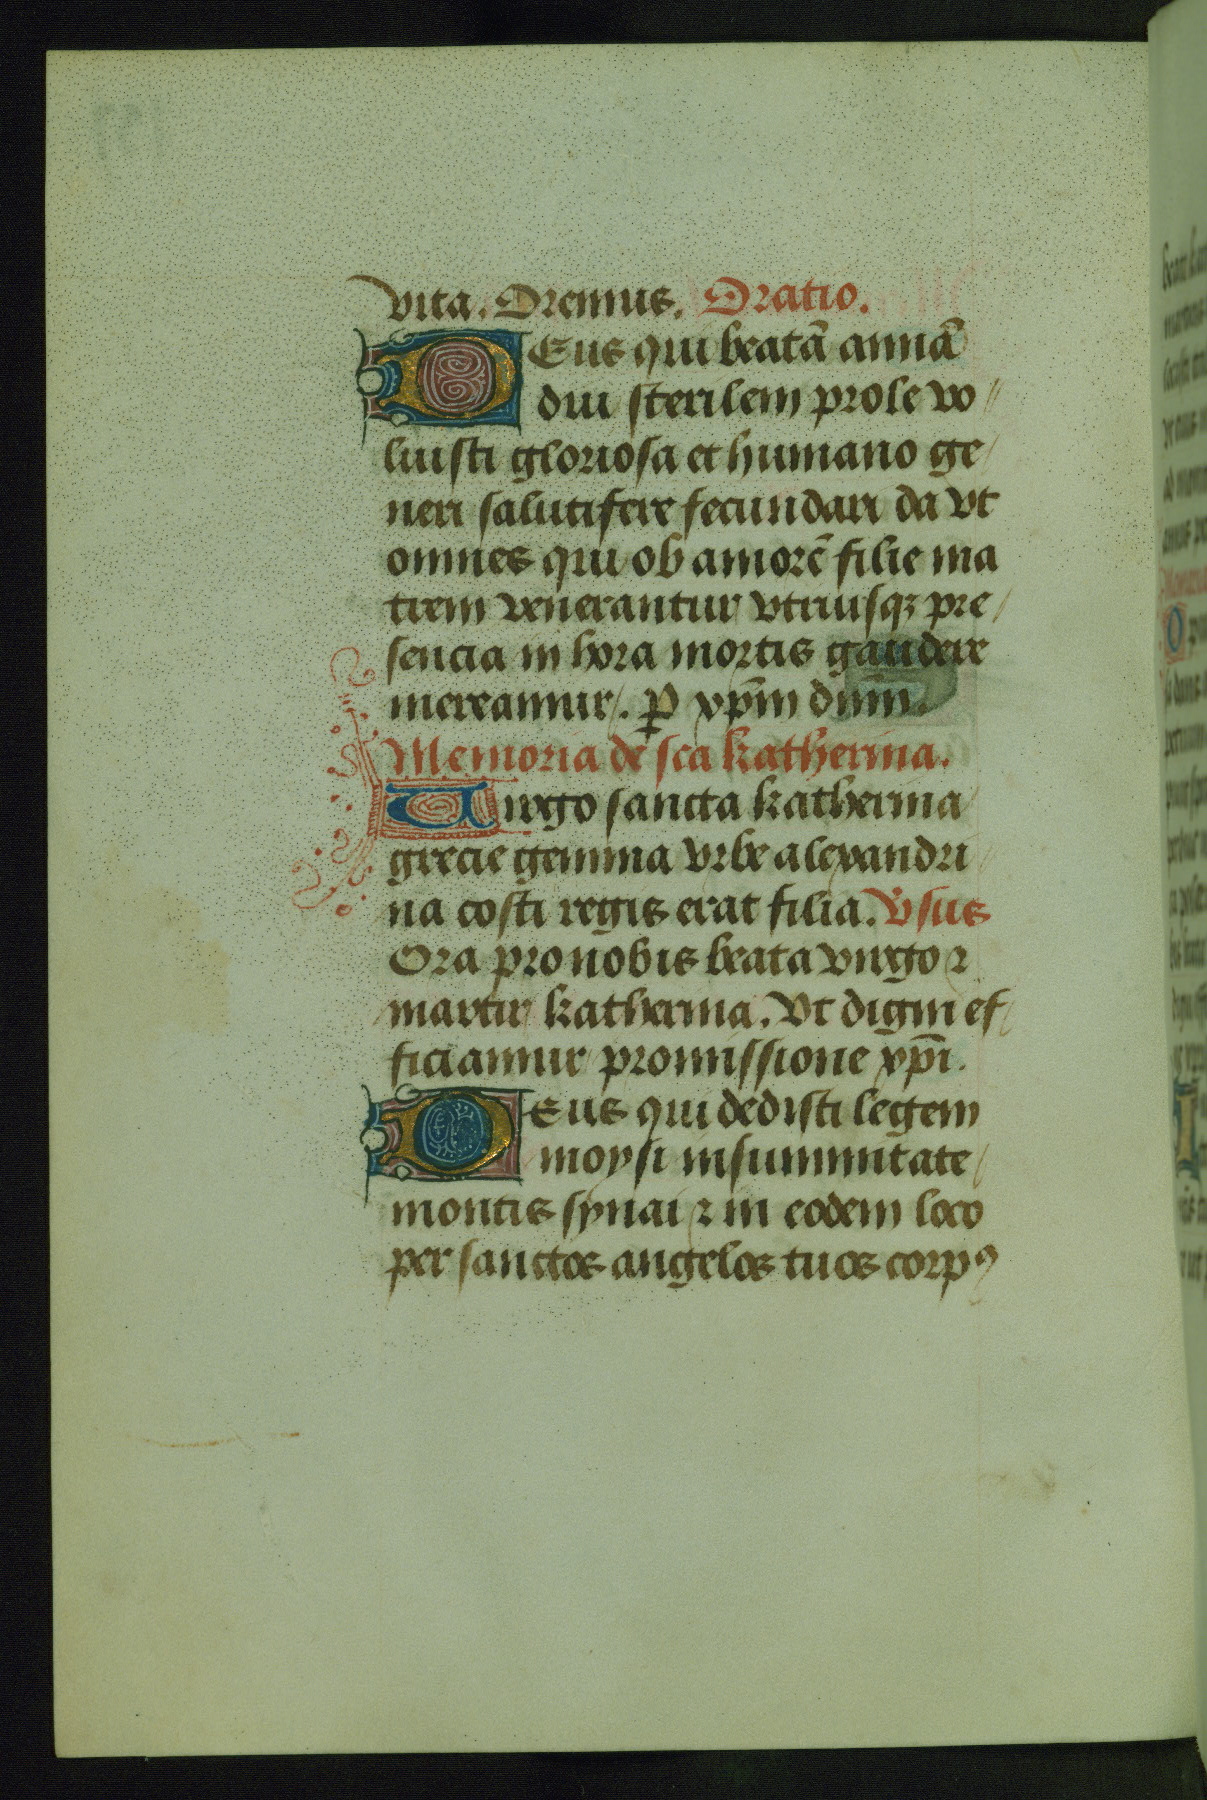 vita. Oremus. Oratio.
DEus qui beatā annā
diu sterilem prole vo
luisti gloriosa et humano ge
neri salutifere fecundari da vt
omnes qui ob amorē filie ma
trem venerantur vtriusqꝫ pre
sencia in hora mortis gaudere
mereamur. ꝑ xp̄m dn̄m.
Memoria de sca katherina.
Uirgo sancta katherina
grecie gemma vrbe alexandri
na costi regis erat filia. Vsus
Ora pro nobis beata virgo ⁊
martir katherina. Vt digni ef
ficiamur promissione xp̄i.
DEus qui dedisti legem
moysi in summitate
montis synai ⁊ in eodem loco
per sanctos angelos tuos corpꝰ